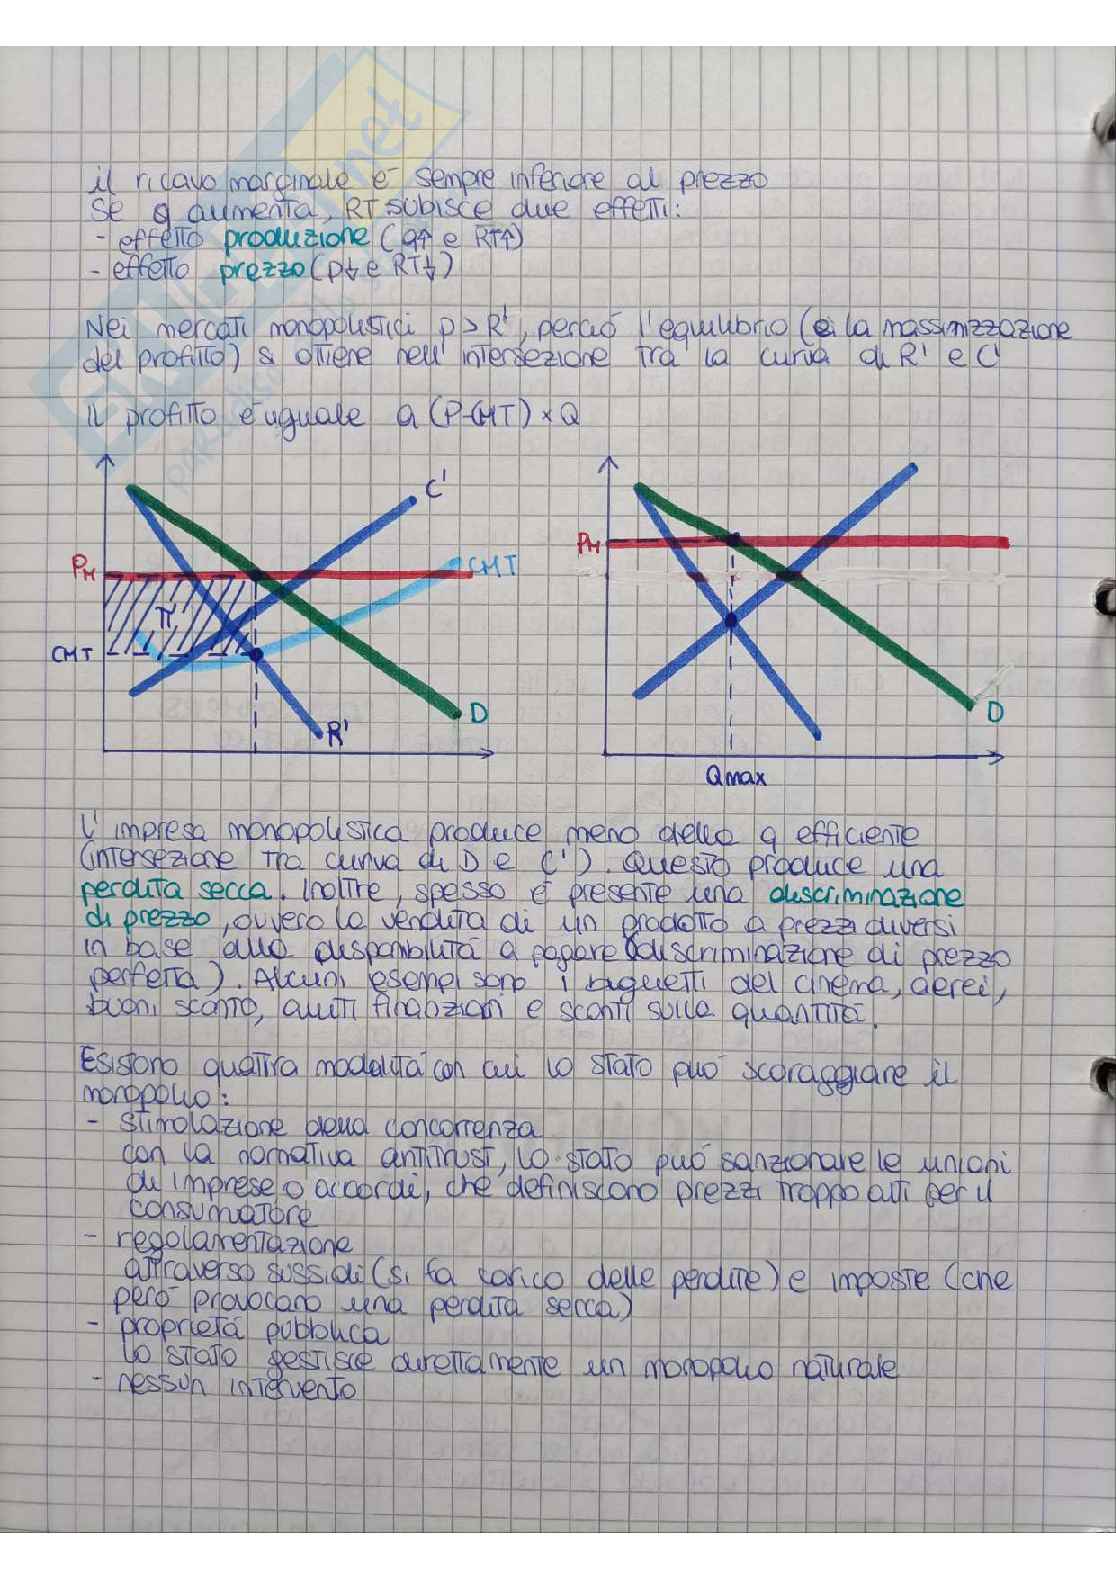 il ricavo marginale è sempre inferiore al prezzo
Se q aumenta, RT subisce due effetti:
- effetto produzione (q↑ e RT↑)
- effetto prezzo (p↓ e RT↓)
Nei mercati monopolistici p>R', perciò l'equilibrio (e la massimizzazione
del profitto) si ottiene nell'intersezione tra la curva di R' e C'
Il profitto è uguale a (P-CMT) × Q
C'
PM
CMT
π
CMT
D
R'
PM
D
Qmax
L'impresa monopolistica produce meno della q efficiente
(intersezione tra curva di D e C'). Questo produce una
perdita secca. Inoltre, spesso è presente una discriminazione
di prezzo, ovvero la vendita di un prodotto a prezzi diversi
in base alla disponibilità a pagare (discriminazione di prezzo
perfetta). Alcuni esempi sono i biglietti del cinema, aerei,
buoni sconto, aiuti finanziari e sconti sulla quantità.
Esistono quattro modalità con cui lo stato può scoraggiare il
monopolio:
- stimolazione della concorrenza
con la normativa antitrust, lo stato può sanzionare le unioni
di imprese o accordi, che definiscono prezzi troppo alti per il
consumatore
- regolamentazione
attraverso sussidi (si fa carico delle perdite) e imposte (che
però provocano una perdita secca)
- proprietà pubblica
lo stato gestisce direttamente un monopolio naturale
- nessun intervento